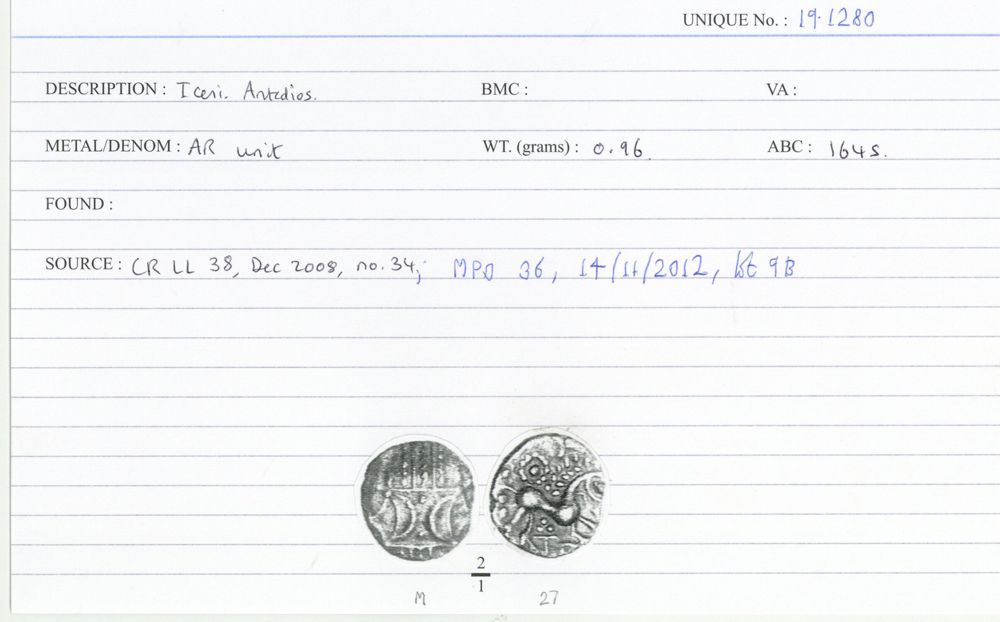 UNIQUE No. : 19.1280
DESCRIPTION : Iceni. Antedios. BMC : VA :
METAL/DENOM : AR unit WT. (grams) : 0.96. ABC : 1645.
FOUND :
SOURCE : CR LL 38, Dec 2008, no. 34; MPO 36, 14/11/2012, lot 9B
2
1
M 27